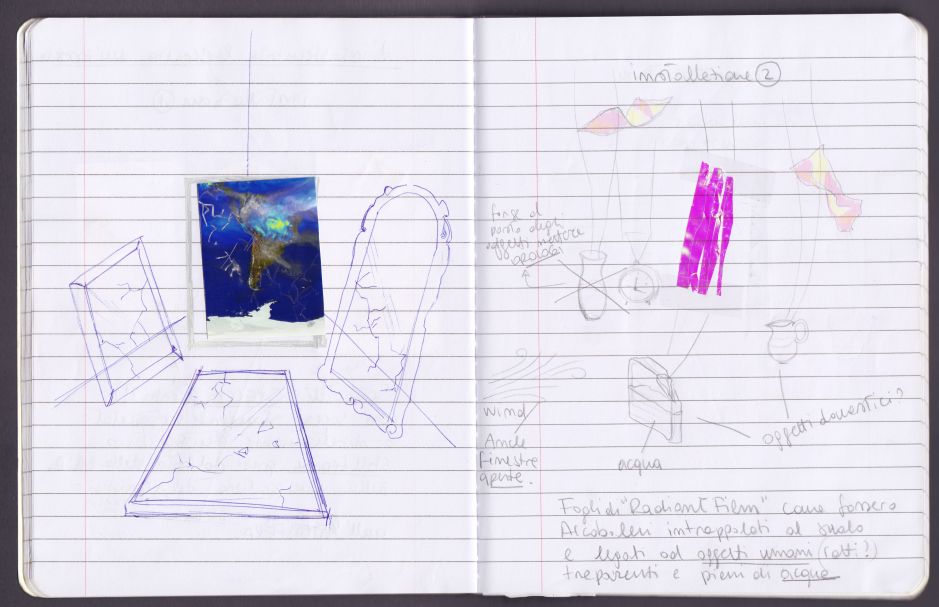 installazione ②
forse al
posto degli
oggetti mettere
orologi
Wind
Anche
finestre
aperte.
acqua
oggetti domestici?
Fogli di "Radiant Film" come fossero
Arcobaleni intrappolati al suolo
e legati ad oggetti umani (otti?)
trasparenti e pieni di acqua